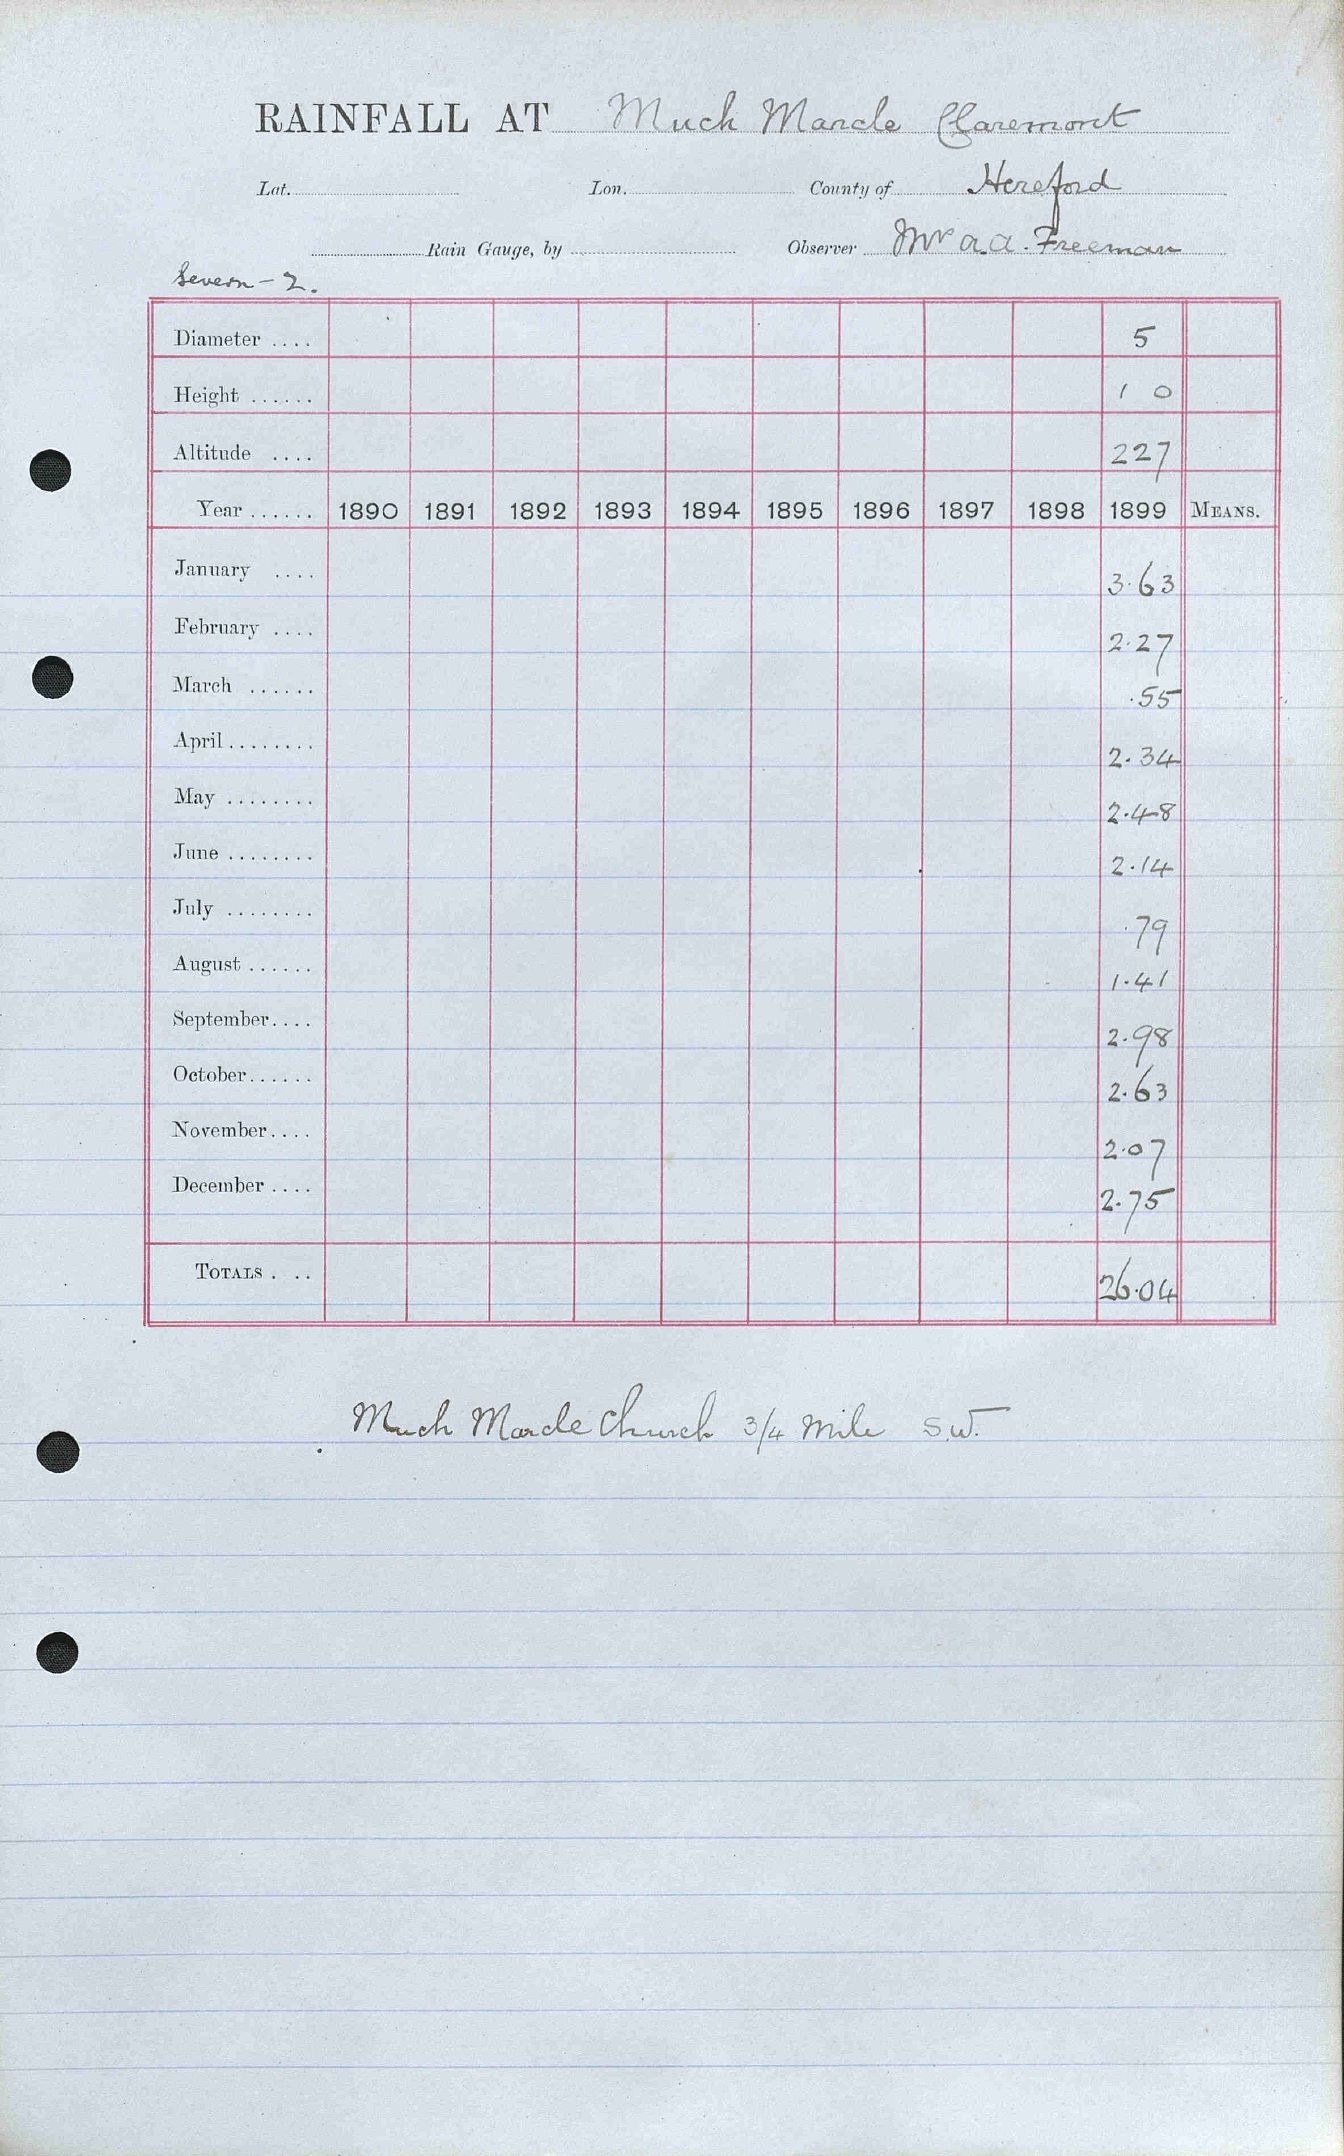 RAINFALL AT Much Marcle Claremont
Lat. Lon. County of Hereford
Rain Gauge, by Observer Mr A.A. Freeman
Severn - 2.
Diameter .... 5
Height ...... 1 0
Altitude .... 227
Year ...... 1890 1891 1892 1893 1894 1895 1896 1897 1898 1899 MEANS.
January .... 3.63
February .... 2.27
March ...... .55
April ........ 2.34
May ........ 2.48
June ........ 2.14
July ........ .79
August ...... 1.41
September.... 2.98
October...... 2.63
November.... 2.07
December .... 2.75
TOTALS . .. 26.04
Much Marcle Church 3/4 Mile S.W.